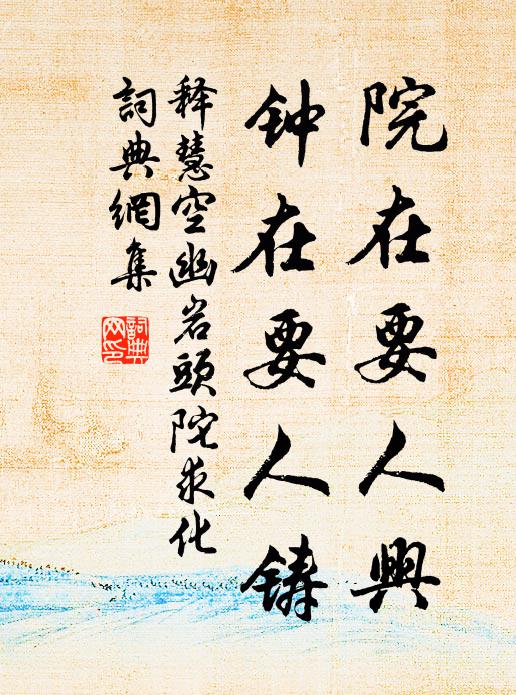 院在要人興
钟在要人鑄
释慧空幽岩頭陀求化
詞典網集
詞典网印